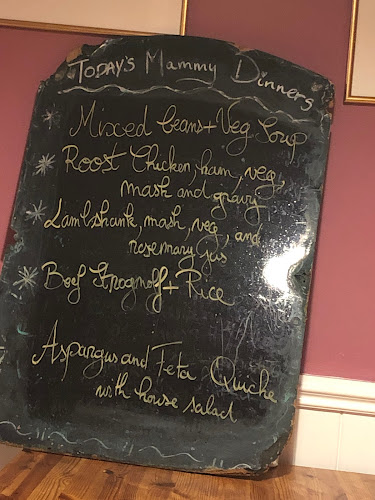 TODAY'S Mammy Dinners
Mixed beans + Veg Soup
Roost Chicken, ham, veg,
mash and gravy
Lamb shank, mash, veg, and
rosemary jus
Beef Strognoff + Rice
Aspargus and Feta Quiche
with house salad